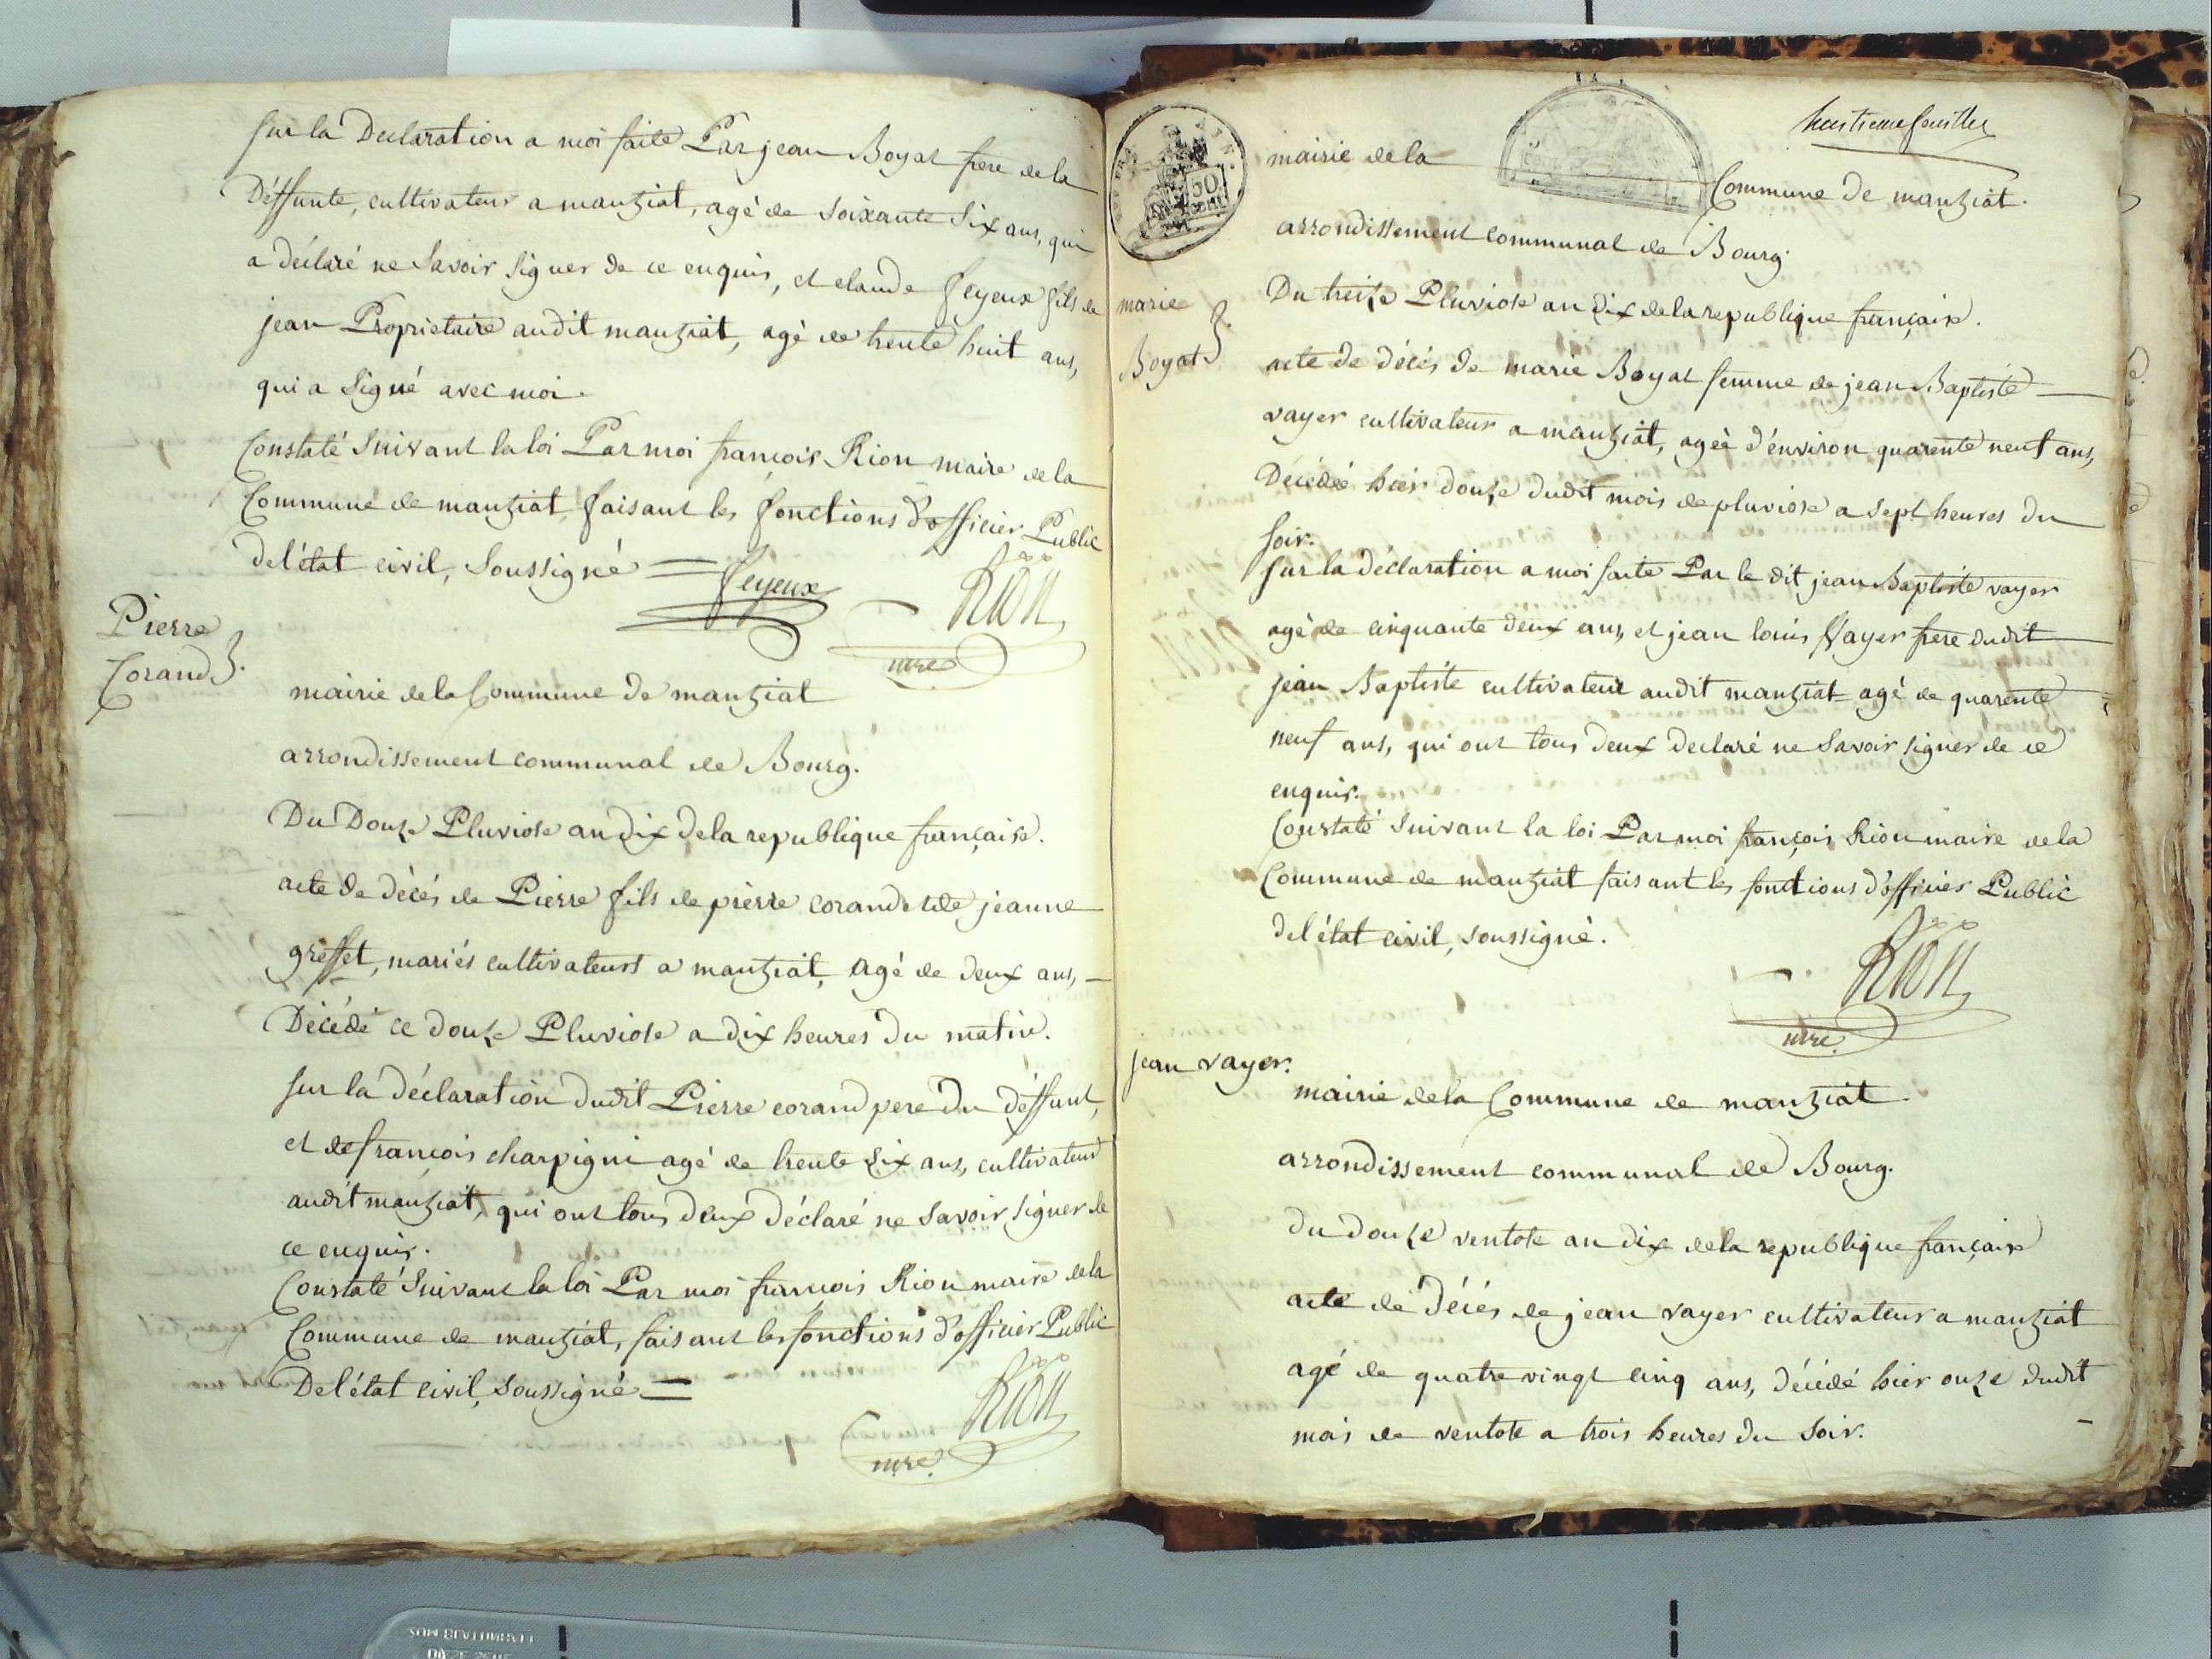 sur la Declaration a moi faite Par jean Boyat frere de la
Déffunte, cultivateur a manziat, agé de soixante six ans, qui
a déclaré ne savoir signer de ce enquis, et claude feyeux fils de
jean Proprietaire audit manziat, agé de trente huit ans,
qui a signé avec moi.
Constaté suivant la loi Par moi françois Rion maire de la
Commune de manziat faisant les fonctions d'officier Public
de l'état civil, soussigné =
feyeux
Rion
mre
Pierre
Corand
mairie de la Commune de manziat
arrondissement communal de Bourg.
Du Douze Pluviose an dix de la republique française.
acte de décés de Pierre fils de pierre corand et de jeanne
greffet, mariés cultivateurs a manziat, agé de deux ans,
Décédé ce douze Pluviose a dix heures du matin.
sur la déclaration dudit Pierre corand pere du déffunt,
et de françois charpigni agé de trente six ans, cultivateur
audit manziat, qui ont tous deux déclaré ne savoir signer de
ce enquis.
Constaté suivant la loi Par moi françois Rion maire de la
Commune de manziat, faisant les fonctions d'officier Public
De l'état civil, soussigné =
Rion
mre
huitieme feuillet
50
mairie de la Commune de manziat.
arrondissement communal de Bourg.
marie
Boyat
Du treize Pluviose an dix de la republique française.
acte de décés de marie Boyat femme de jean Baptiste
vayer cultivateur a manziat, ageé d'environ quarente neuf ans,
Décédée hier douze dudit mois de pluviose a sept heures du
soir.
sur la déclaration a moi faite Par le dit jean Baptiste vayer
agé de cinquante deux ans, et jean louis Vayer frere dudit
jean Baptiste cultivateur audit manziat agé de quarente
neuf ans, qui ont tous deux declaré ne savoir signer de ce
enquis.
Constaté suivant la loi Par moi françois Rion maire de la
Commune de manziat faisant les fonctions d'officier Public
de l'état civil, soussigné.
Rion
mre
jean vayer.
mairie de la Commune de manziat
arrondissement communal de Bourg.
du douze ventose an dix de la republique française
acte de décés de jean vayer cultivateur a manziat
agé de quatre vingt cinq ans, décédé hier onze dudit
mois de ventose a trois heures du soir.